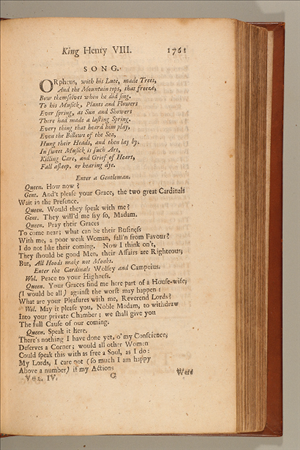 King Henry VIII. 1761
SONG.
ORpheus, with his Lute, made Trees,
And the Mountain tops, that freeze,
Bow themselves when he did sing.
To his Musick, Plants and Flowers
Ever sprung, as Sun and Showers
There had made a lasting Spring.
Every thing that heard him play,
Even the Billows of the Sea,
Hung their Heads, and then lay by.
In sweet Musick is such Art,
Killing Care, and Grief of Heart,
Fall asleep, or hearing dye.
Enter a Gentleman.
Queen. How now?
Gent. And't please your Grace, the two great Cardinals
Wait in the Presence.
Queen. Would they speak with me?
Gent. They will'd me say so, Madam.
Queen. Pray their Graces
To come near; what can be their Business
With me, a poor weak Woman, fall'n from Favour?
I do not like their coming. Now I think on't,
They should be good Men, their Affairs are Righteous;
But, All Hoods make not Monks.
Enter the Cardinals Wolsey and Campeius.
Wol. Peace to your Highness.
Queen. Your Graces find me here part of a House-wife;
(I would be all) against the worst may happen:
What are your Pleasures with me, Reverend Lords?
Wol. May it please you, Noble Madam, to withdraw
Into your private Chamber; we shall give you
The full Cause of our coming.
Queen. Speak it here.
There's nothing I have done yet, o' my Conscience,
Deserves a Corner; would all other Women
Could speak this with as free a Soul, as I do:
My Lords, I care not (so much I am happy
Above a number) if my Actions
VOL. IV. G Were